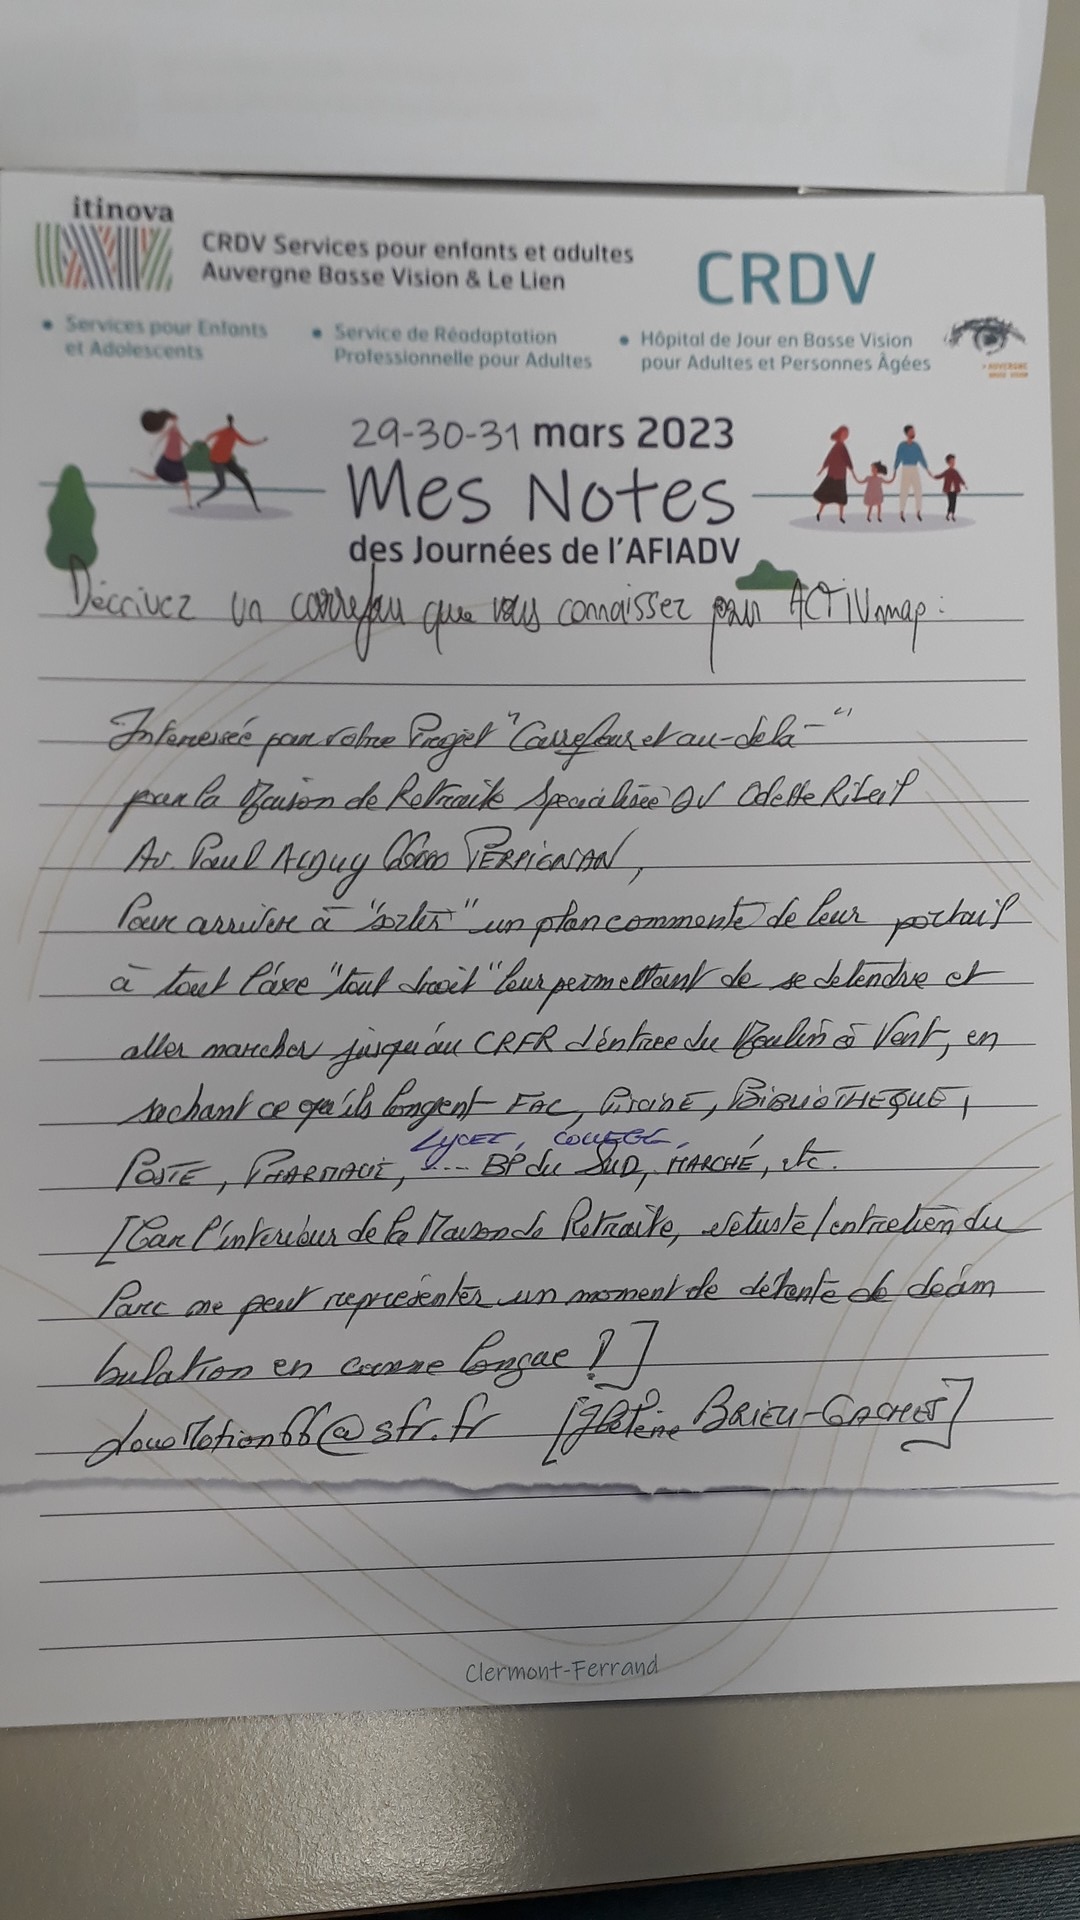 itinova
CRDV Services pour enfants et adultes
Auvergne Basse Vision & Le Lien
CRDV
• Services pour Enfants
et Adolescents
• Service de Réadaptation
Professionnelle pour Adultes
• Hôpital de Jour en Basse Vision
pour Adultes et Personnes Âgées
AUVERGNE
BASSE VISION
29-30-31 mars 2023
Mes Notes
des Journées de l'AFIADV
Décrivez un carrefour que vous connaissez pour ACTIVmap :
Interessée par votre Projet "Carrefour et au-delà"
pour la Maison de Retraite Specialisée DV Odette Ribeil
Av. Paul Alduy 66000 PERPIGNAN,
Pour arriver à "sortir" un plan commenté de leur portail
à tout l'axe "tout droit" leur permettant de se detendre et
aller marcher jusqu'au CRFR d'entrée du Moulin à Vent, en
sachant ce qu'ils longent FAC, PISCINE, BIBLIOTHEQUE,
LYCEE, COLLEGE,
POSTE, PHARMACIE, ... BP du SUD, MARCHÉ, etc.
[Car l'interieur de la Maison de Retraite, vetusté/entretien du
Parc ne peut représenter un moment de détente de déam
bulation en canne longue !]
locomotion66@sfr.fr [Hélène BRIEU-GACHET]
Clermont-Ferrand